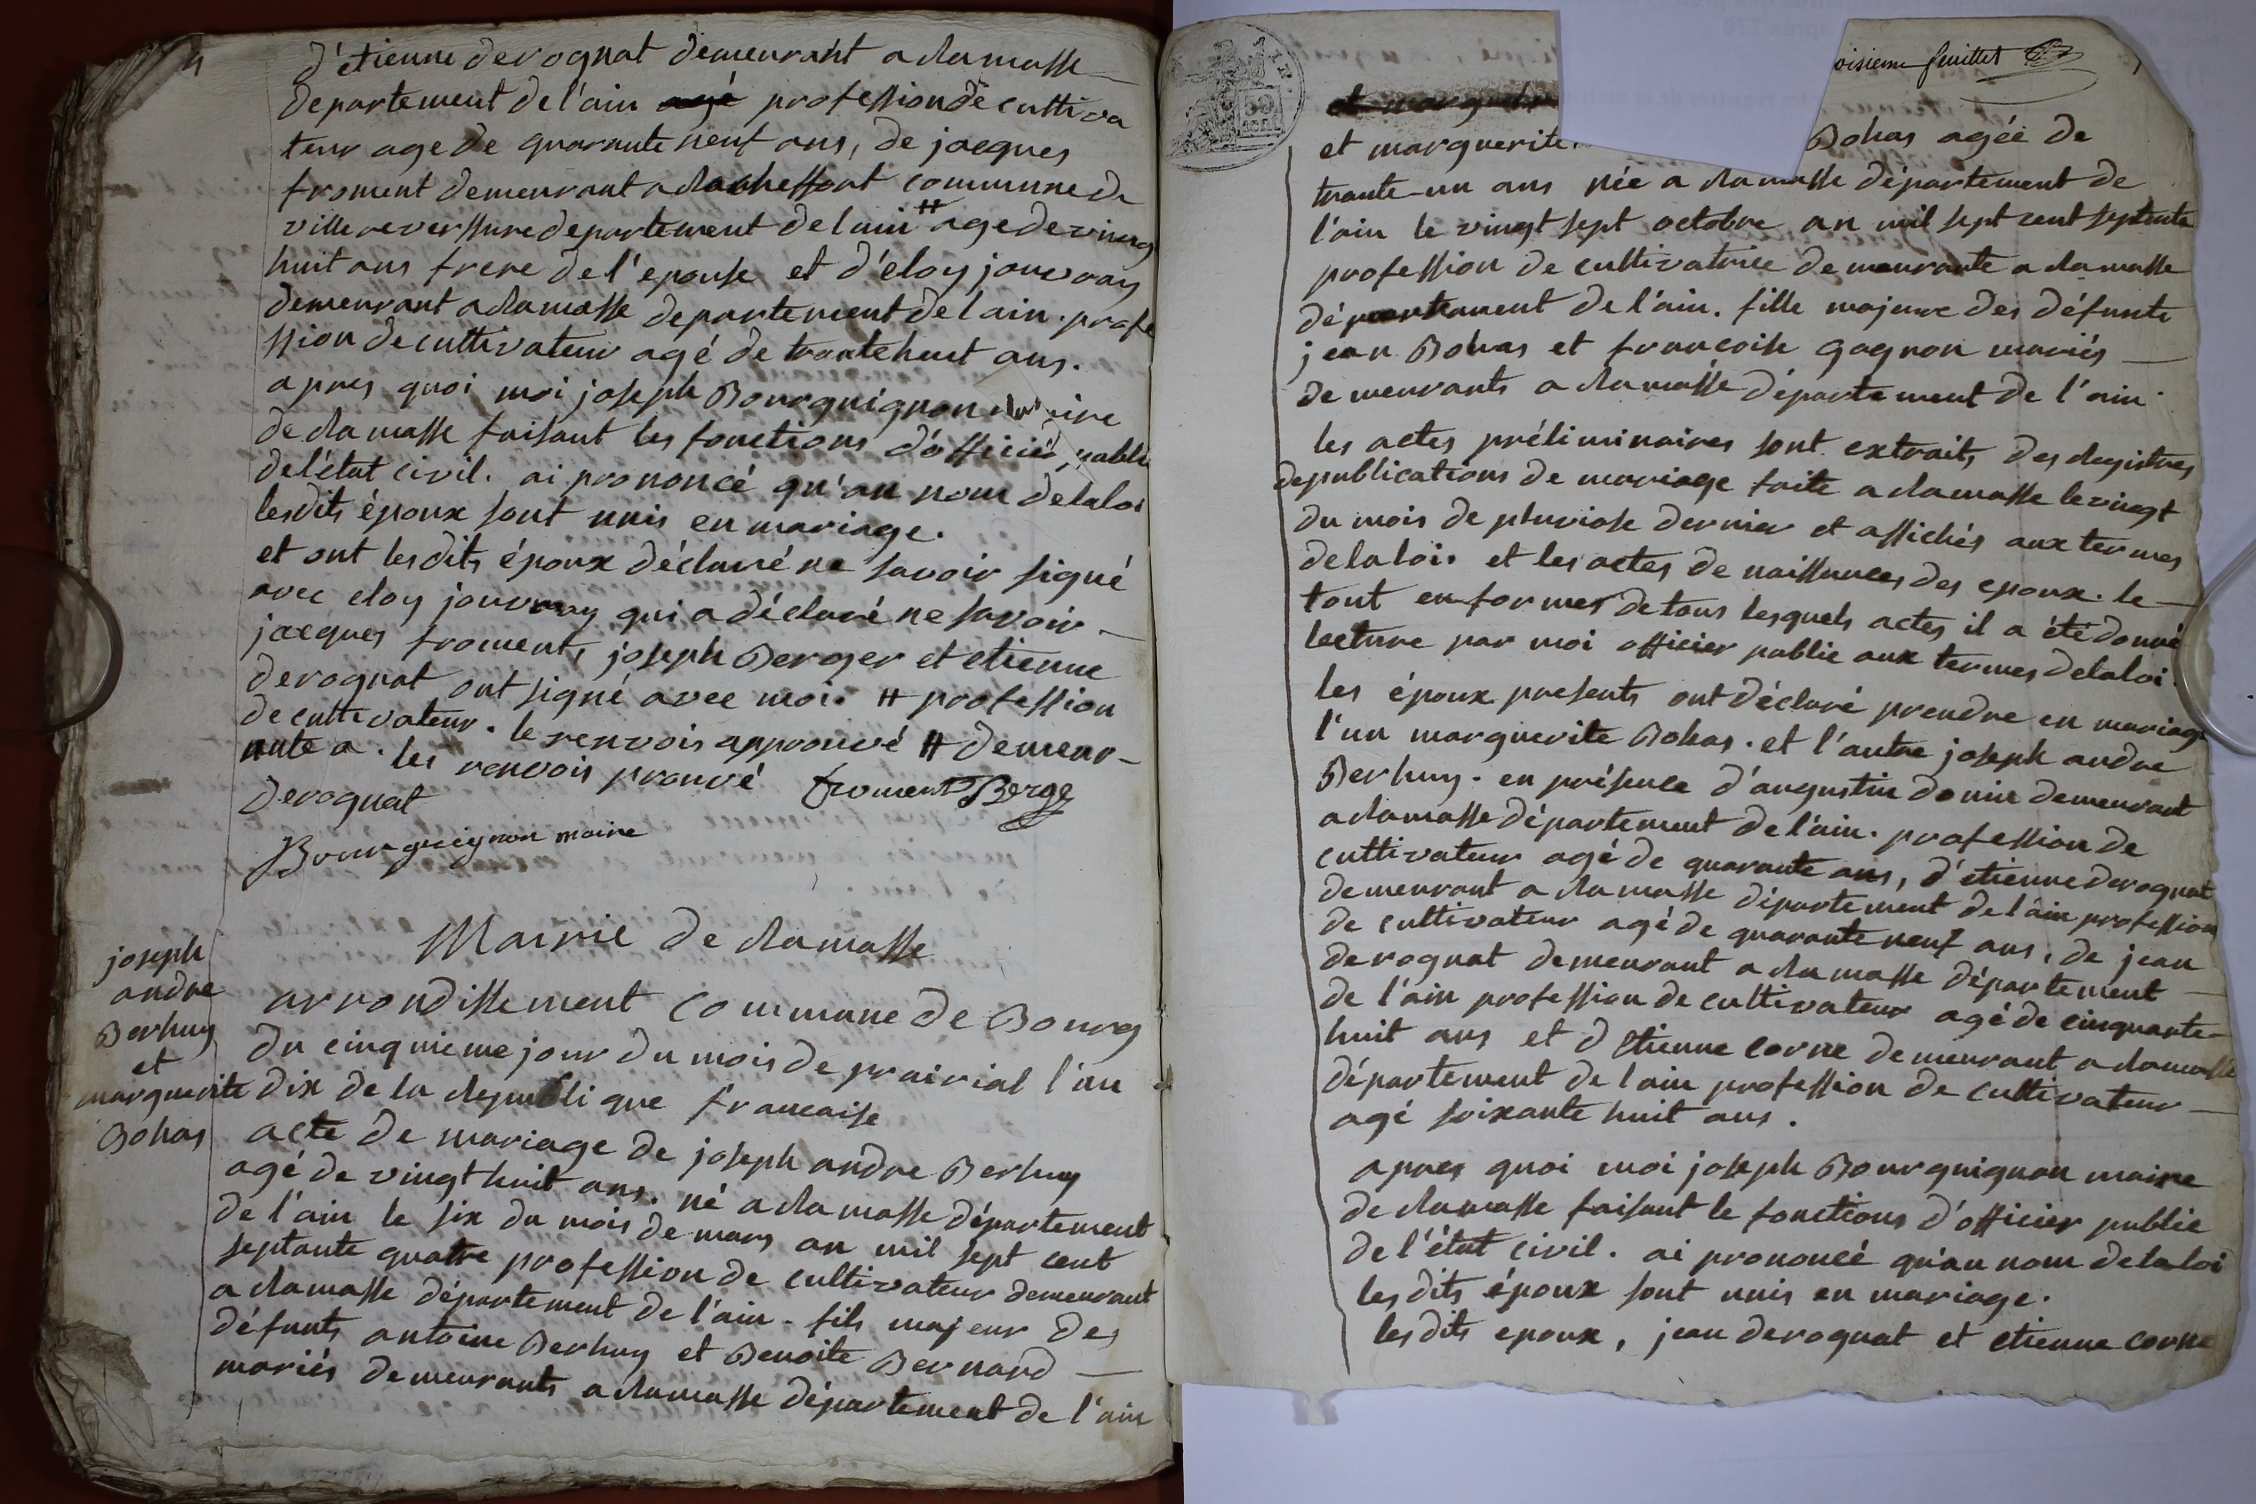 d'étienne derognat demeurant a ramasse
departement de l'ain agé profession de cultiva
teur age de quarante neuf ans, de jacques
froment demeurant a rocheffort commune de
villereverssure departement de lain # age de vingt
huit ans frere de l'epouse et d'éloy jouvray
demeurant a ramasse departement de lain. profe
ssion de cultivateur agé de trante huit ans.
apres quoi moi joseph Bourguignon maire
de ramasse faisant les fonctions d'officié public
de l'état civil. ai prononcé qu'au nom de la loi
lesdits époux sont unis en mariage.
et ont lesdits époux déclaré ne savoir signé
avec eloy jouvray qui a déclaré ne savoir
jacques froment, joseph Berger et etienne
derognat ont signé avec moi. # profession
de cultivateur. le renvois approuvé # demeur-
ante a. les renvois prouvé froment Berger
Derognat
Bourguignon maire
joseph
andre
Berhuy
et
marguerite
Bohas
Mairie de ramasse
arrondissement commune de Bourg
du cinquieme jour du mois de prairial l'an
dix de la republique francaise
acte de mariage de joseph andre Berhuy
agé de vingt huit ans. né a ramasse département
de l'ain le six du mois de mars an mil sept cent
septante quatre profession de cultivateur demeurant
a ramasse département de l'ain. fils majeur des
défunts antoine Berhuy et Benoite Bernard
mariés demeurants a ramasse département de l'ain
oisieme feuillet
et marguerite
et marguerite Bohas agée de
trante-un ans née a ramasse département de
l'ain le vingt sept octobre an mil sept cent septente
profession de cultivatrice demeurante a ramasse
département de l'ain. fille majeure des défunts
jean Bohas et francoise gagnon mariés
demeurants a ramasse département de l'ain.
les actes préliminaires sont extraits des registres
de publications de mariage faite a ramasse le vingt
du mois de pluviose dernier et affichés aux termes
de la loi. et les actes de naissances des epoux. le
tout en formes de tous lesquels actes il a été donné
lecture par moi officier public aux termes de la loi.
les époux presents ont déclaré prendre en mariage
l'un marguerite Bohas. et l'autre joseph andre
Berhuy. en présence d'augustin demeurant
a ramasse département de l'ain. profession de
cultivateur agé de quarante ans, d'étienne derognat
demeurant a ramasse département de lain profession
de cultivateur agé de quarante neuf ans, de jean
derognat demeurant a ramasse département
de l'ain profession de cultivateur agé de cinquante
huit ans et d etienne corne demeurant a ramasse
département de lain profession de cultivateur
agé soixante huit ans.
apres quoi moi joseph Bourguignon maire
de ramasse faisant le fonctions d'officier public
de l'état civil. ai prononcé qu'au nom de la loi
lesdits époux sont unis en mariage.
lesdits epoux, jean derognat et etienne corne